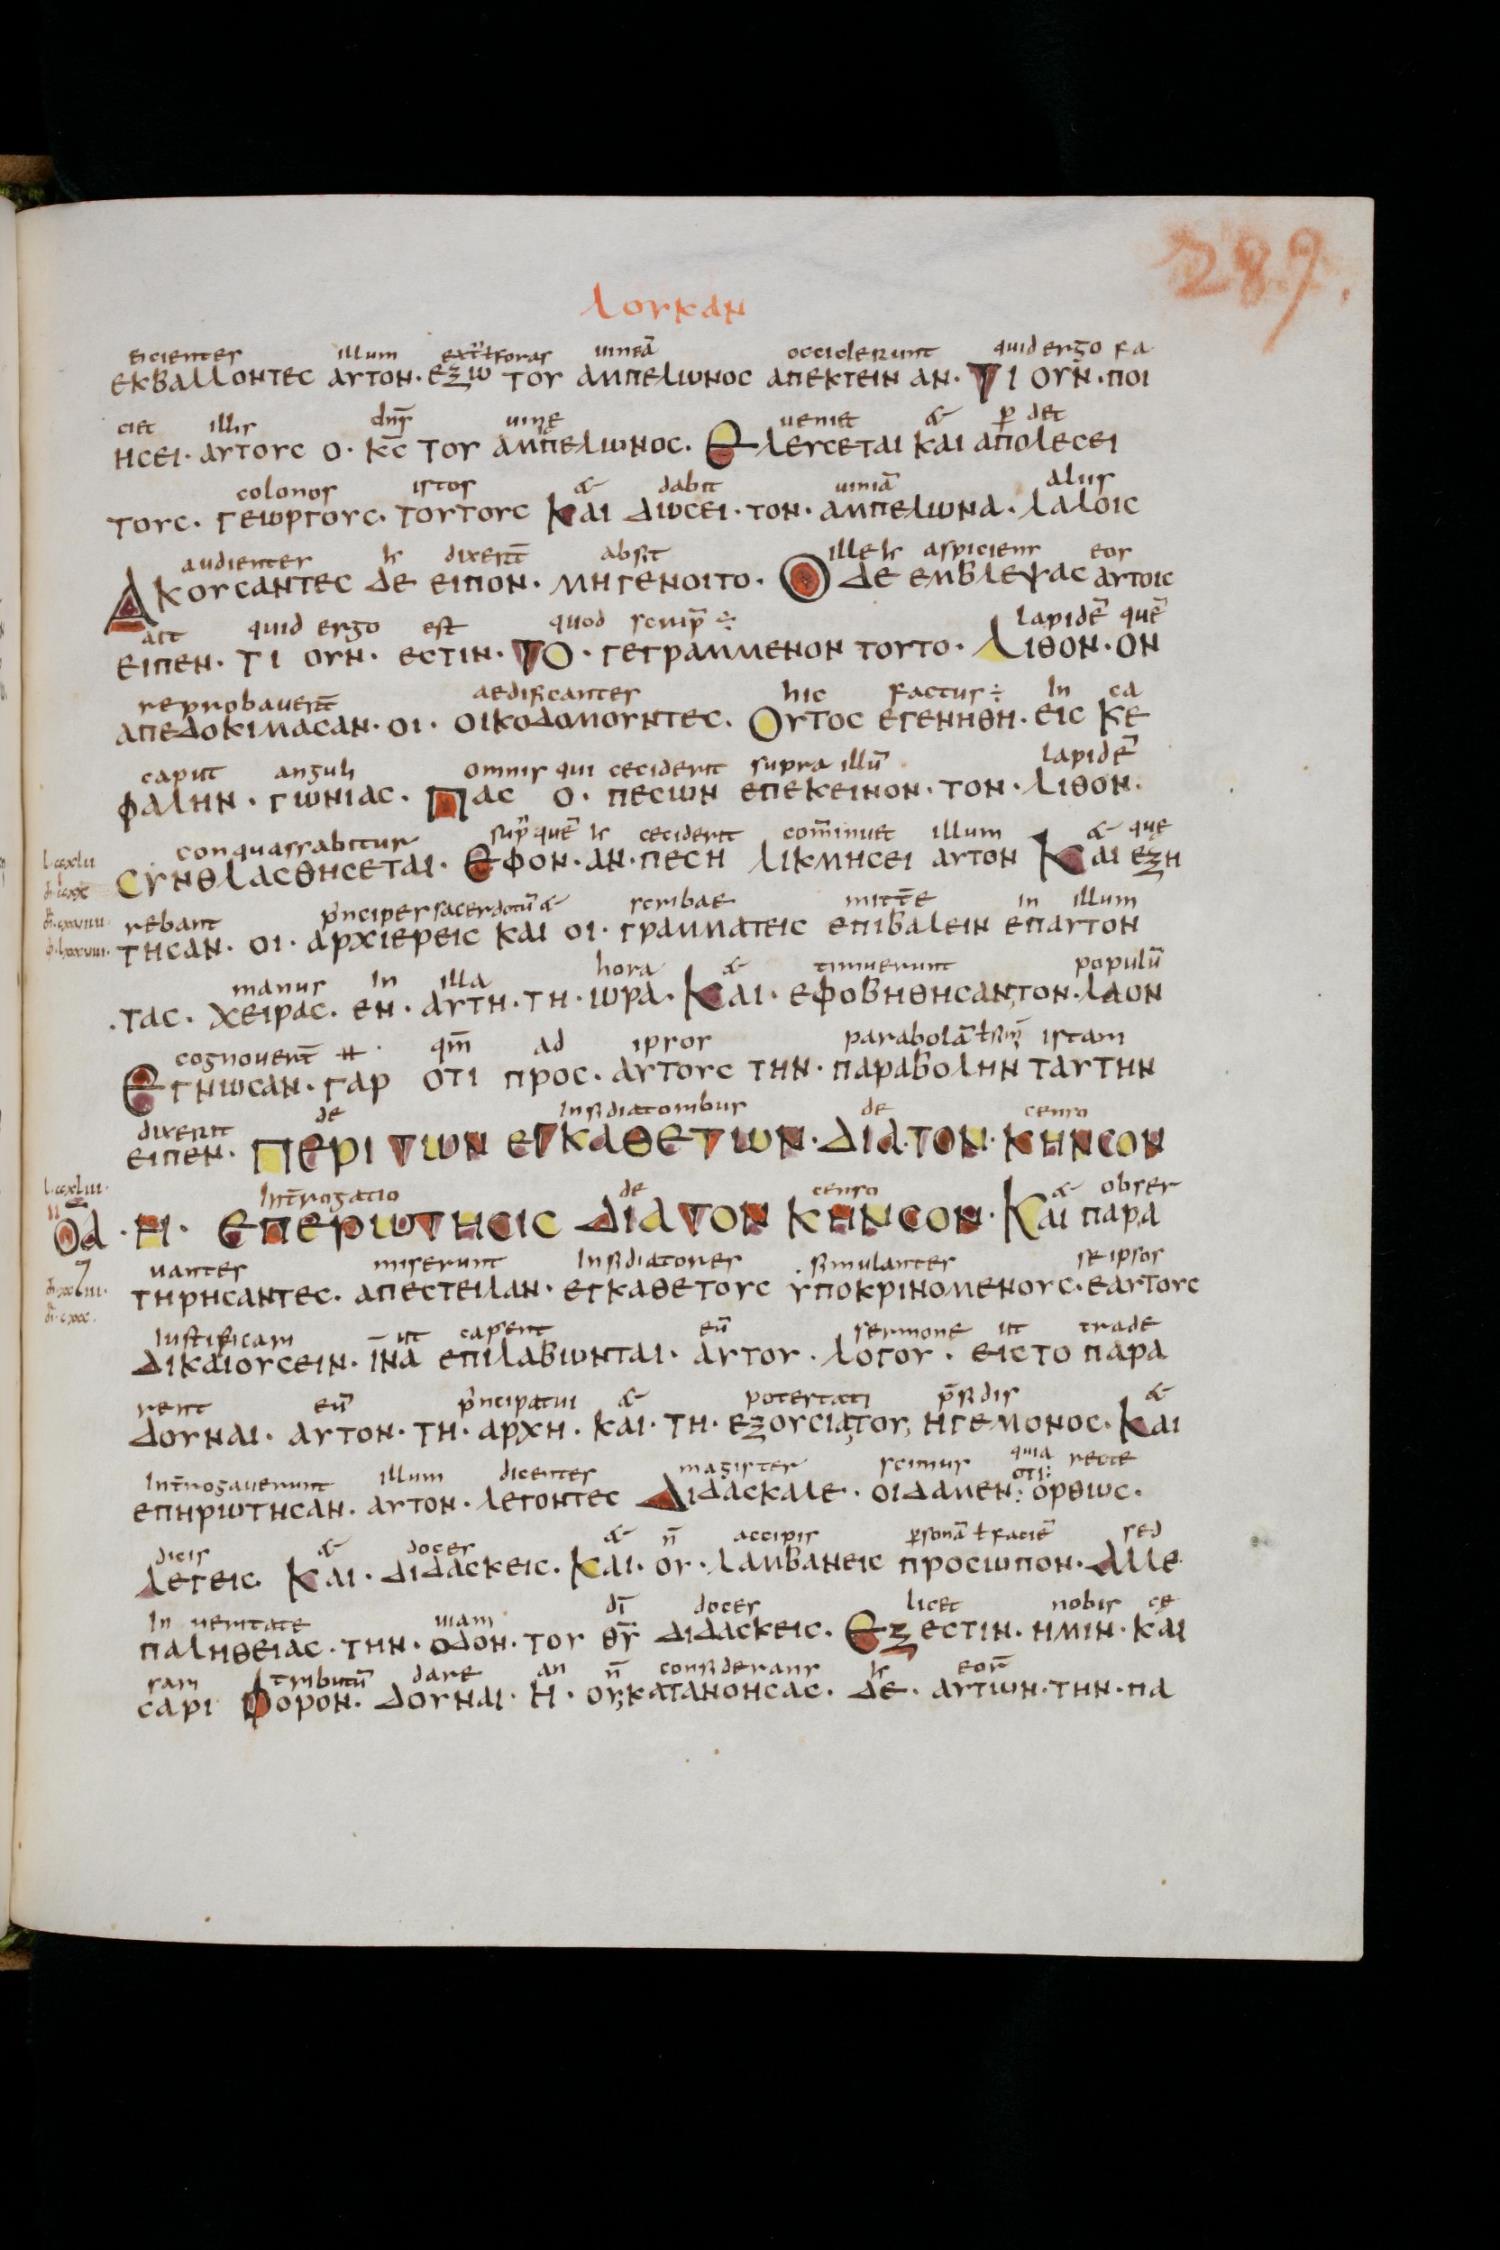 289.
λουκαν
eicientes illum extra ł foras uineā occiderunt quid ergo fa
εκβαλλοντεс αυτον· εξω του αμπελωνος απεκτειν αν· Τι ουν· ποι
ciet illis dn̄s uinę
ησει· αυτους ο· κ̄ς του αμπελωνος. Ελευσεται και απολεσει
ueniet & ꝑdet
colonos istos & dabit uiniā aliis
τους· γεωργους· τουτους Και Δωσει· τον· αμπελωνα· λαλοις
audientes ħ dixer̄t absit ille ħ aspiciens eos
Ακουσαντες δε ειπον· μηγενοιτο· Ο δε εμβλεψας αυτοις
ait quid ergo est quod scrip̄ ÷ lapidē quē
ειπεν· τι ουν· εστιν· ΤΟ· γεγραμμενον τουτο· Λιθον· ον
reprobauer̄t aedificantes hic factus ÷ In ca
απεδοκιμασαν· οι· οικοδομουντες. Ουτος εγενηθη· εις κε
caput anguli omnis qui ceciderit supra illū lapidē
φαλην· γωνιας· Πας ο· πεσων επεκεινον· τον· λιθον·
conquassabitur suꝑ quē ħ ceciderit com̄inuet illum & quę
Συνθλασθησεται· Εφον· αν· πεση λικμησει αυτον Και εζη
rebant principes sacerdotū & scribae mitte in illum
τησαν· οι· αρχιερεις και οι· γραμματεις επιβαλειν επαυτον
manus In illa hora & timuerunt populū
·τας· χειρας· εν· αυτη· τη· ωρα· Και· εφοβηθησαν, τον· λαον
cognouer̄t qm̄ ad ipsos parabolā istam
Εγνωσαν· γαρ οτι προς· αυτους την· παραβολην ταυτην
dixerit de Insidiatoribus de censo
ειπεν· Περι των εγκαθετων· δια· τον· κηνσον
Int̄rogatio de censo & obser
οα· Η· Επερωτησις δια τον κηνσον· Και παρα
uantes miserunt Insidiatores simulantes seipsos
τηρησαντες· απεστειλαν· εγκαθετους υποκρινομενους· εαυτους
Iustificam ut capent eū sermone ut trade
δικαιουσειν· ινα επιλαβωνται· αυτου· λογου· εις το παρα
rent eū principatui & potestati p̄sidis &
δουναι· αυτον· τη· αρχη· και· τη· εξουσια, του, ηγεμονος· Και
Int̄rogauerunt illum dicentes magister scimus quia recte
επηρωτησαν· αυτον· λεγοντες Διδασκαλε· οιδαμεν: οτι: ορθως·
dicis & doces & n̄ accipis ꝑsonā ł faciē sed
λεγεις· Και· διδασκεις· Και· ου· λαμβανεις προσωπον· Αλλε
In ueritate uiam dī doces licet nobis cę
παληθειας· την· οδον· του θ̄υ διδασκεις· Εξεστιν· ημιν· και
sari tributū dare an n̄ considerans ħ eor̄
σαρι Φορον· δουναι· Η· ου, κατανοησας· δε· αυτων· την· πα